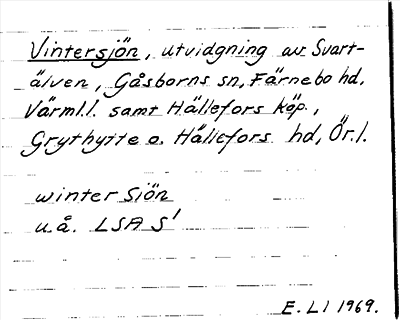 Vintersjön, utvidgning av Svart-
älven, Gåsborns sn, Färnebo hd,
Värml.l. samt Hällefors köp.,
Grythytte o. Hällefors hd, Ör.l.
winter Siön
u.å. LSA S1
E. LI 1969.